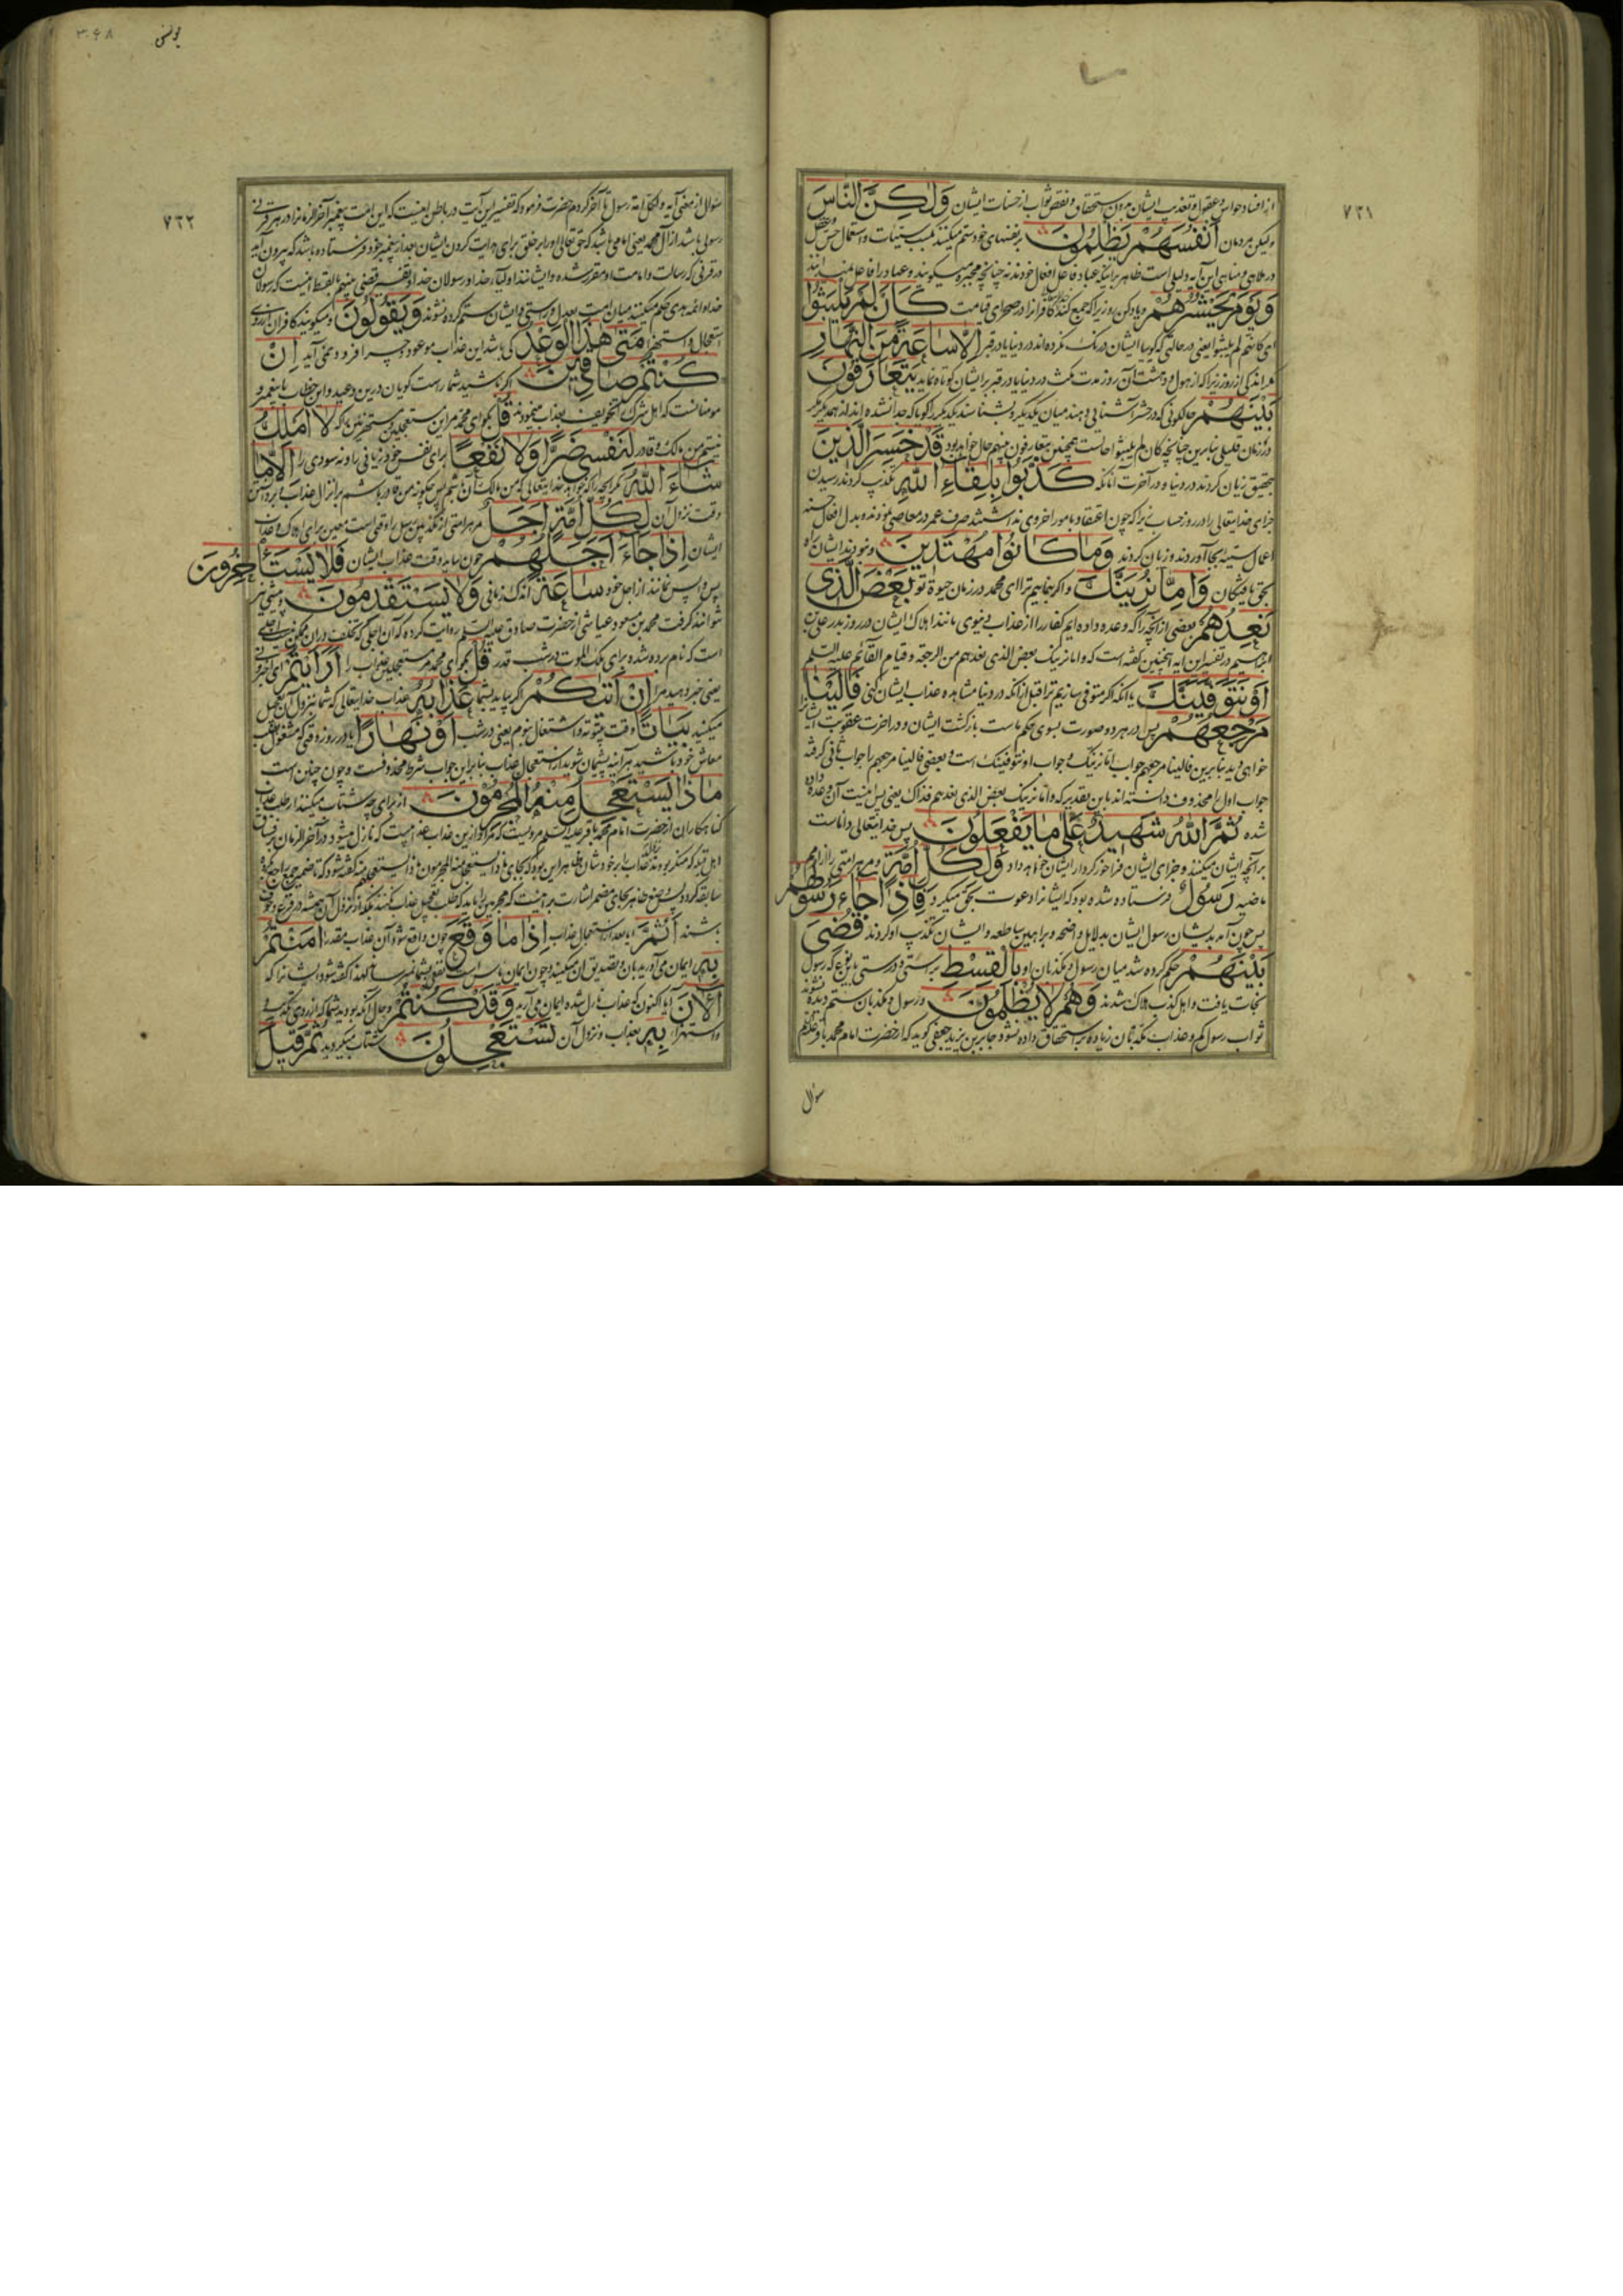 ٧٢١
از افساد حواس و عقول و تعذیب ایشان بدون استحقاق و نقض ثواب از حسنات ایشان وَلٰكِنَّ النَّاسَ
ولیکن مردمان اَنْفُسَهُمْ يَظْلِمُونَ بر نفسهای خود ستم میکنند بکسب سیئات و استعمال حواس
در ملاهی و مناهی این آیه دلیل است ظاهر بر اینکه عباد فاعل افعال خودند نه چنانچه مجبره میگویند و عباد را فاعل نمیدانند
وَيَوْمَ يَحْشُرُهُمْ و یاد کن روزیرا که جمع کند کافرانرا در صحرای قیامت كَاَنْ لَمْ يَلْبَثُوا
ای کانهم لم یلبثوا یعنی در حالتی که گوییا ایشان درنگ نکرده اند در دنیا یا در قبر اِلَّا سَاعَةً مِنَ النَّهَارِ
مگر اندکی از روز زیرا که از هول و دهشت آن روز مدت مکث در دنیا یا در قبر بر ایشان کوتاه نماید يَتَعَارَفُونَ
بَيْنَهُمْ در حالتی که در حشر آشنائی دهند میان یکدیگر و بشناسند یکدیگر را گویا که جدا نشده اند از همدیگر مگر
در زمان قلیلی بنابرین چنانچه کان لم یلبثوا حالست همچنین یتعارفون بینهم حال خواهد بود قَدْ خَسِرَ الَّذِينَ
بتحقیق زیان کردند در دنیا و در آخرت آنانکه كَذَّبُوا بِلِقَاءِ اللّٰهِ تکذیب کردند رسیدن
جزای خدایتعالی را در روز حساب زیرا که چون اعتقاد بامور اخروی نداشتند صرف عمر در معاصی نمودند و بدل افعال حسنه
اعمال سیئه بجا آوردند و زیان کردند وَمَا كَانُوا مُهْتَدِينَ و نبودند ایشان راه
بحق یافتگان وَاِمَّا نُرِيَنَّكَ و اگر بنماییم ترا ای محمد در زمان حیوة تو بَعْضَ الَّذِي
نَعِدُهُمْ بعضی از آنچه را که وعده داده ایم کفار را از عذاب دنیوی مانند اهلاک ایشان در روز بدر علی بن
ابراهیم در تفسیر این آیه اینچنین گفته است که و اما نرینک بعض الذی نعدهم من الرجعة و قیام القائم علیه السلم
اَوْ نَتَوَفَّيَنَّكَ یا آنکه اگر متوفی سازیم ترا قبل از آنکه در دنیا مشاهده عذاب ایشان کنی فَاِلَيْنَا
مَرْجِعُهُمْ پس در هر دو صورت بسوی حکم ماست بازگشت ایشان و در آخرت عقوبت ایشانرا
خواهی دید بنابرین فالینا مرجعهم جواب اما نرینک و جواب او نتوفینک است و بعضی فالینا مرجعهم را جواب ثانی گرفته
جواب اول را محذوف دانسته اند باین تقدیر که و اما نرینک بعض الذی نعدهم فذاک یعنی پس اینست آن وعده داده
شده ثُمَّ اللّٰهُ شَهِيدٌ عَلٰى مَا يَفْعَلُونَ پس خدایتعالی داناست
بر آنچه ایشان میکنند و جزای ایشان فراخور کردار ایشان خواهد داد وَلِكُلِّ اُمَّةٍ و مر هر امتی را از امم
ماضیه رَسُولٌ فرستاده شده بود که ایشانرا دعوت بحق میکرد فَاِذَا جَاءَ رَسُولُهُمْ
پس چون آمد بدیشان رسول ایشان بدلایل واضحه و براهین ساطعه و ایشان تکذیب او کردند قُضِيَ
بَيْنَهُمْ حکم کرده شد میان رسول و مکذبان او بِالْقِسْطِ براستی و درستی باین نوع که رسول
نجات یافت و اهل کذب هلاک شدند وَهُمْ لَا يُظْلَمُونَ و رسول و مکذبان ستم دیده نشوند
ثواب رسول کم و عذاب مکذبان زیاده بر استحقاق داده نشود جابر بن یزید جعفی گوید که از حضرت امام محمد باقر علیه السلم
سؤال
٣٠٤٨
یونس
٧٢٢
سؤال از معنی آیه و لکل امة رسول تا آخر کردم حضرت فرمود که تفسیر این آیت در باطن اینست که این امت پیغمبر آخر الزمانرا در هر قرنی
رسولی باشد از آل محمد یعنی امامی باشد که حق تعالی او را بر خلق برای هدایت کردن ایشان بعد از پیغمبر خود فرستاده باشد که بیرون آید
در قرنی که رسالت و امامت او مقرر شده و ایشانند اولیاء خدا و رسولان خدا و تفسیر قضی بینهم بالقسط اینست که رسولان
خدا و ائمه هدی حکم میکنند میان امت بعدل و راستی و ایشان ستم کرده نشوند وَيَقُولُونَ و میگویند کافران از روی
استعجال و استهزا مَتٰى هٰذَا الْوَعْدُ کی باشد این عذاب موعود و چرا فرود نمی آید اِنْ
كُنْتُمْ صَادِقِينَ اگر باشید شما راست گویان درین وعید و این خطاب با پیغمبر و
مومنانست که اهل شرک را تخویف بعذاب مینمودند قُلْ بگو ای محمد مر این مستعجلین و مستهزئین را که لَا اَمْلِكُ
نیستم من مالک و قادر لِنَفْسِي ضَرًّا وَلَا نَفْعًا برای نفس خود زیانی را و نه سودی را اِلَّا مَا
شَاءَ اللّٰهُ مگر آنچه را که خواهد خدایتعالی که من مالک آن باشم پس چگونه من قادر باشم بر انزال عذاب
وقت نزول آن لِكُلِّ اُمَّةٍ اَجَلٌ مر هر امتی از مکذبین رسل را وقتی است معین برای اهلاک و عذاب
ایشان اِذَا جَاءَ اَجَلُهُمْ چون بیاید وقت عذاب ایشان فَلَا يَسْتَأْخِرُونَ
پس واپس نمانند از اجل خود سَاعَةً اندک زمانی وَلَا يَسْتَقْدِمُونَ و پیشی نیز
نتوانند گرفت محمد بن مسعود عیاشی از حضرت صادق علیه السلم روایت کرده که آن اجلی که تخلف در آن ممکن نیست اجلی
است که نام برده شده برای ملک الموت در شب قدر قُلْ بگو ای محمد مر مستعجلین عذاب را اَرَاَيْتُمْ ای اخبرونی
یعنی خبر دهید مرا اِنْ اَتٰيكُمْ اگر بیاید بشما عَذَابُهُ عذاب خدایتعالی که شما بنزول آن تعجیل
میکنید بَيَاتًا وقت بیتوته و اشتغال بنوم یعنی در شب اَوْ نَهَارًا یا در روز وقتی که مشغول بطلب
معاش خود باشید هر آینه پشیمان شوید از استعجال عذاب بنابراین جواب شرط محذوفست و چون چنین است
مَاذَا يَسْتَعْجِلُ مِنْهُ الْمُجْرِمُونَ از برای چه شتاب میکنند از طلب عذاب
گناهکاران از حضرت امام محمد باقر علیه السلم مرویست که مراد ازین عذاب عذابیست که نازل میشود در آخر الزمان بر فساق
اهل قبله که منکر بودند نزول عذاب را بر خودشان
باشند اَثُمَّ آیا بعد از استعجال عذاب اِذَا مَا وَقَعَ چون واقع شود آن عذاب مقدر اٰمَنْتُمْ
بِهِ ایمان می آورید بآن و تصدیق آن میکنید
آلْاٰنَ آیا اکنون که عذاب نازل شده ایمان می آورید وَقَدْ كُنْتُمْ و حال آنکه بودید شما که از روی تکذیب
و استهزا بِهِ بعذاب و نزول آن تَسْتَعْجِلُونَ شتاب میکردید ثُمَّ قِيلَ